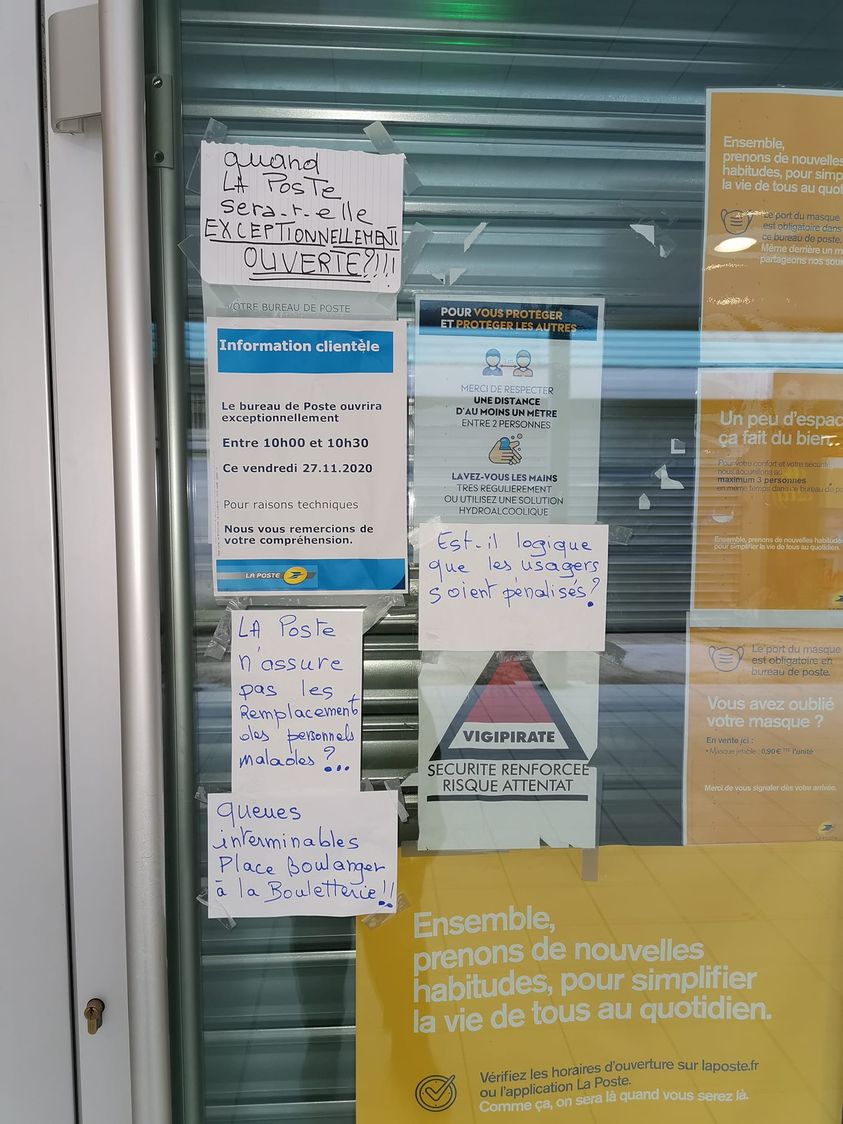 quand
LA POSTE
sera-t-elle
EXCEPTIONNELLEMENT
OUVERTE?!!!
VOTRE BUREAU DE POSTE
Information clientèle
Le bureau de Poste ouvrira
exceptionnellement
Entre 10h00 et 10h30
Ce vendredi 27.11.2020
Pour raisons techniques
Nous vous remercions de
votre compréhension.
LA POSTE
LA Poste
n'assure
pas les
Remplacement
des personnels
malades ?...
queues
interminables
Place Boulanger
à la Bouletterie!!
POUR VOUS PROTÉGER
ET PROTÉGER LES AUTRES
MERCI DE RESPECTER
UNE DISTANCE
D'AU MOINS UN MÈTRE
ENTRE 2 PERSONNES
LAVEZ-VOUS LES MAINS
TRES REGULIEREMENT
OU UTILISEZ UNE SOLUTION
HYDROALCOOLIQUE
Est-il logique
que les usagers
soient pénalisés?
VIGIPIRATE
SECURITE RENFORCEE
RISQUE ATTENTAT
Ensemble,
prenons de nouvelles
habitudes, pour simp
la vie de tous au quot
Le port du masque
est obligatoire dans
ce bureau de poste.
Même derrière un m
partageons nos sou
Un peu d'espac
ça fait du bien
Pour votre confort et votre sécurité
nous accueillons au
maximum 3 personnes
en même temps dans ce bureau de p
Ensemble, prenons de nouvelles habitude
pour simplifier la vie de tous au quotidien.
Le port du masque
est obligatoire en
bureau de poste.
Vous avez oublié
votre masque ?
En vente ici :
• Masque jetable : 0,90 € TTC l'unité
Merci de vous signaler dès votre arrivée.
LA POSTE
Ensemble,
prenons de nouvelles
habitudes, pour simplifier
la vie de tous au quotidien.
Vérifiez les horaires d'ouverture sur laposte.fr
ou l'application La Poste.
Comme ça, on sera là quand vous serez là.